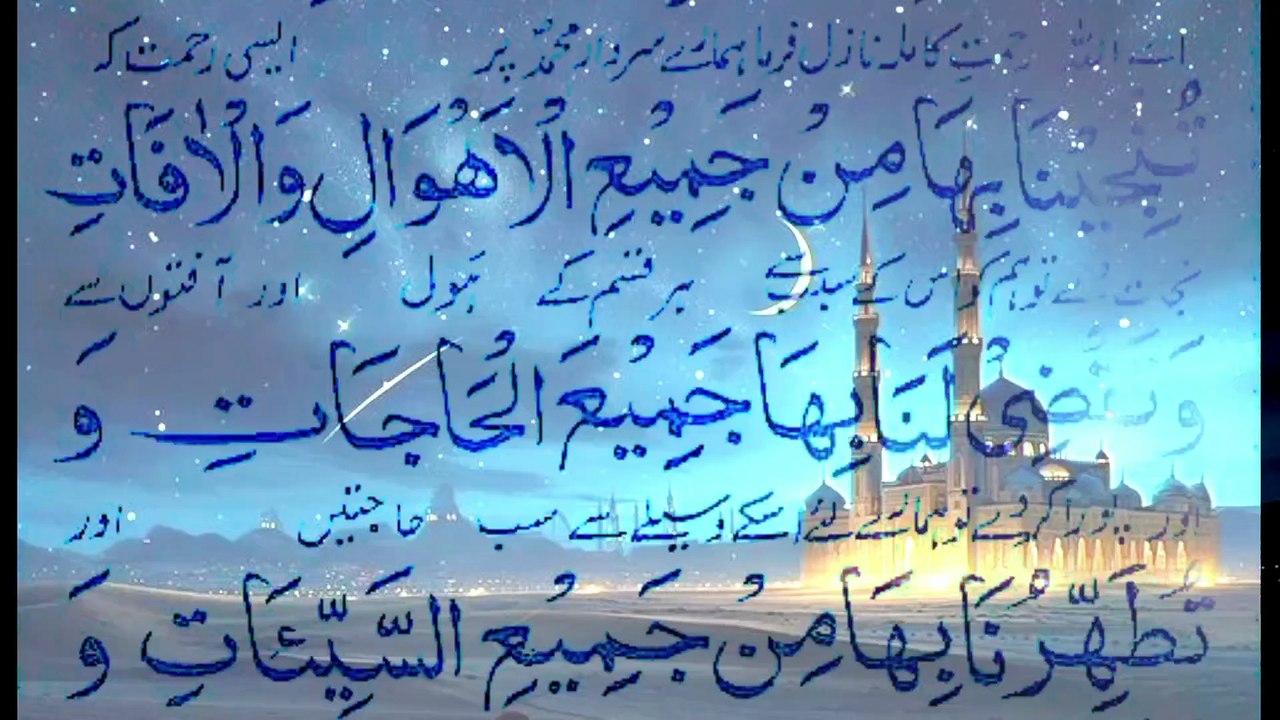 اے اللہ رحمتِ کاملہ نازل فرما ہمارے سردار محمدؐ پر ایسی رحمت کہ
تُنْجِيْنَا بِهَا مِنْ جَمِيْعِ الْاَهْوَالِ وَالْاٰفَاتِ
نجات دے تو ہم کو اس کے سبب سے ہر قسم کے ہَول اور آفتوں سے
وَتَقْضِیْ لَنَا بِهَا جَمِيْعَ الْحَاجَاتِ وَ
اور پورا کر دے تو ہمارے لئے اسکے وسیلے سے سب حاجتیں اور
تُطَهِّرُنَا بِهَا مِنْ جَمِيْعِ السَّيِّئَاتِ وَ